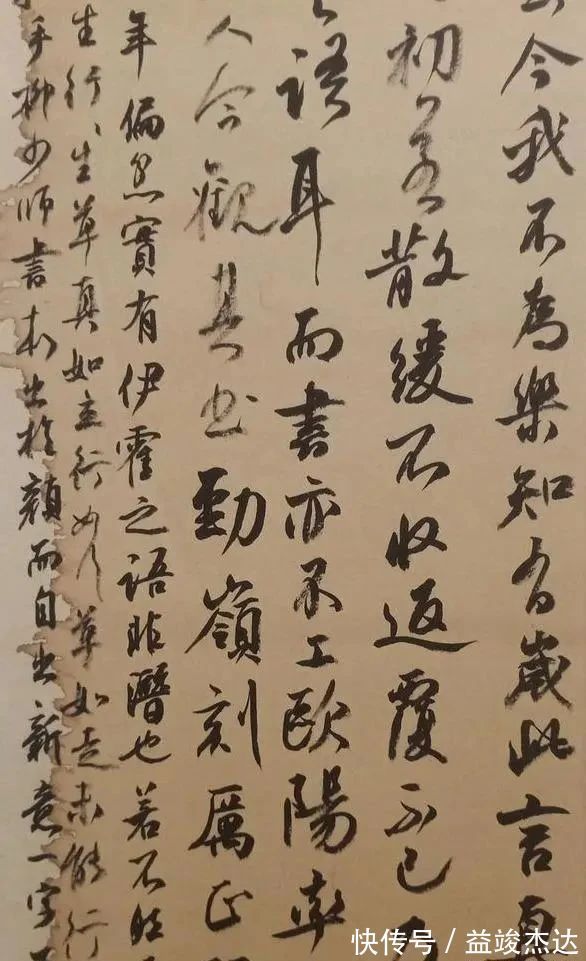 今我不為樂知有歲此言真
初若散緩不收返覆不已乃
語耳而書亦不工歐陽率
人今觀其書勁嶺刻厲正
年偏忿實有伊霍之語非譖也若不然
生行、生草真如立行如行草如走未能行
乎柳少師書本出於顏而自出新意一字
快传号/益竣杰达